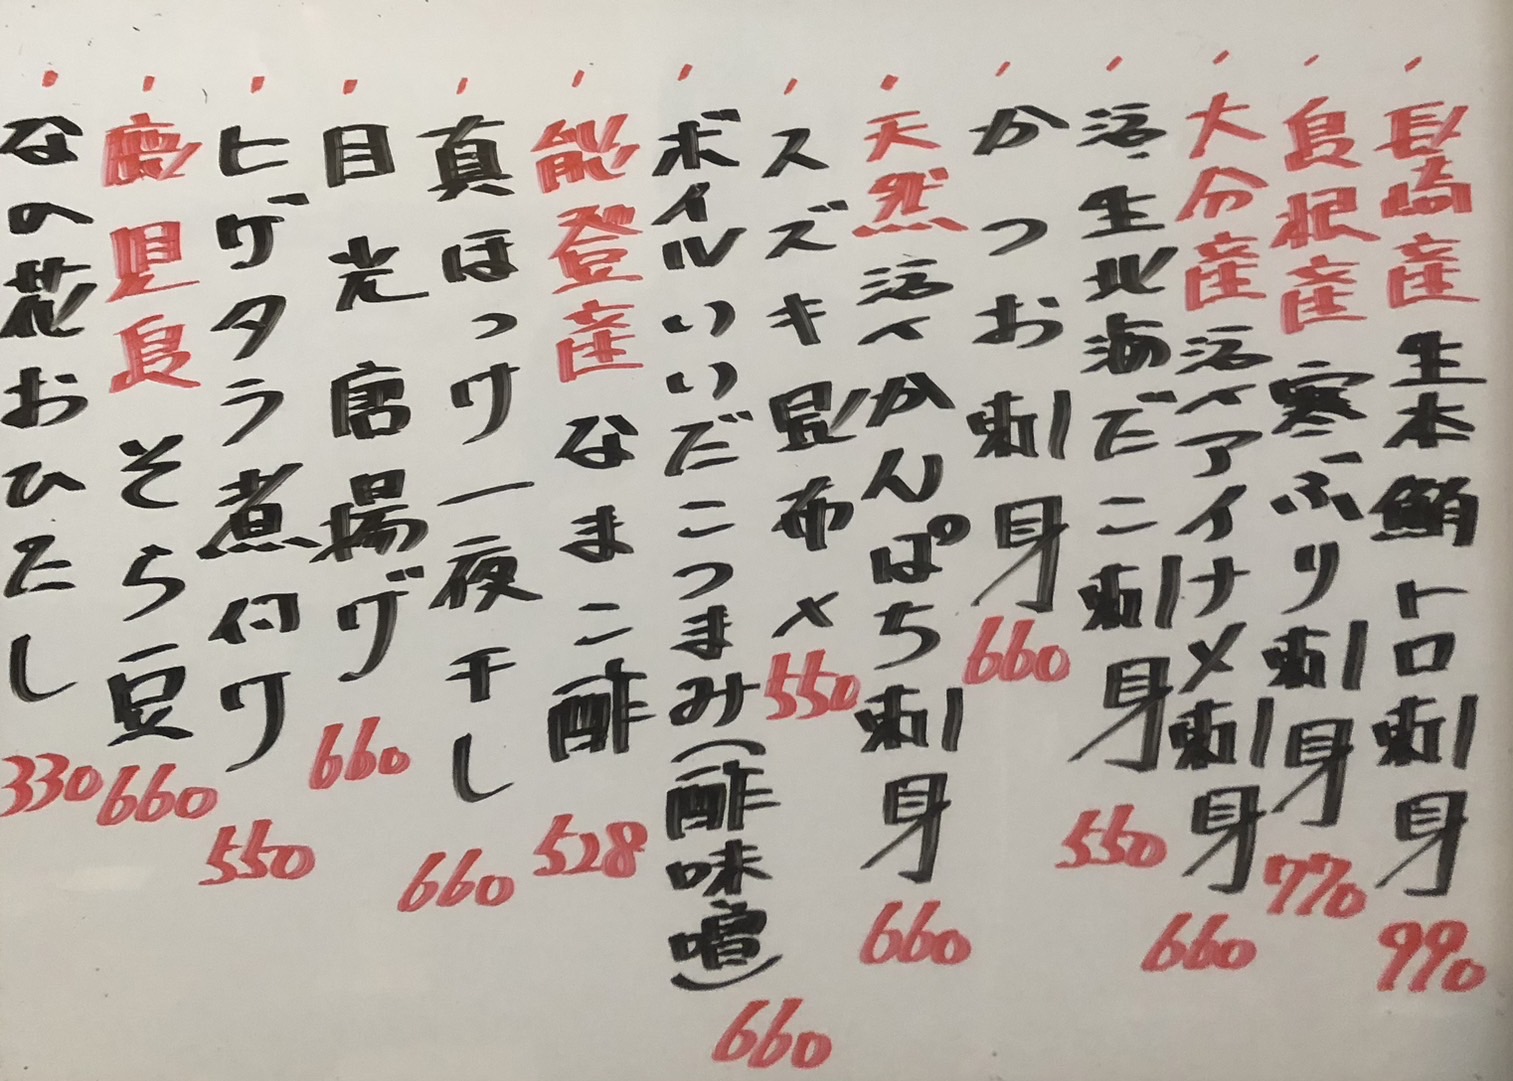 長崎産 生本鮪トロ刺身 990
島根産 寒ぶり刺身 770
大分産 活〆アイナメ刺身 660
活・生北海だこ刺身 550
かつお刺身 660
天然 活〆かんぱち刺身 660
スズキ昆布〆 550
ボイルいいだこつまみ(酢味噌) 660
能登産 なまこ酢 528
真ほっけ一夜干し 660
目光唐揚げ 660
ヒゲタラ煮付け 550
鹿児島 そら豆 660
なの花おひたし 330